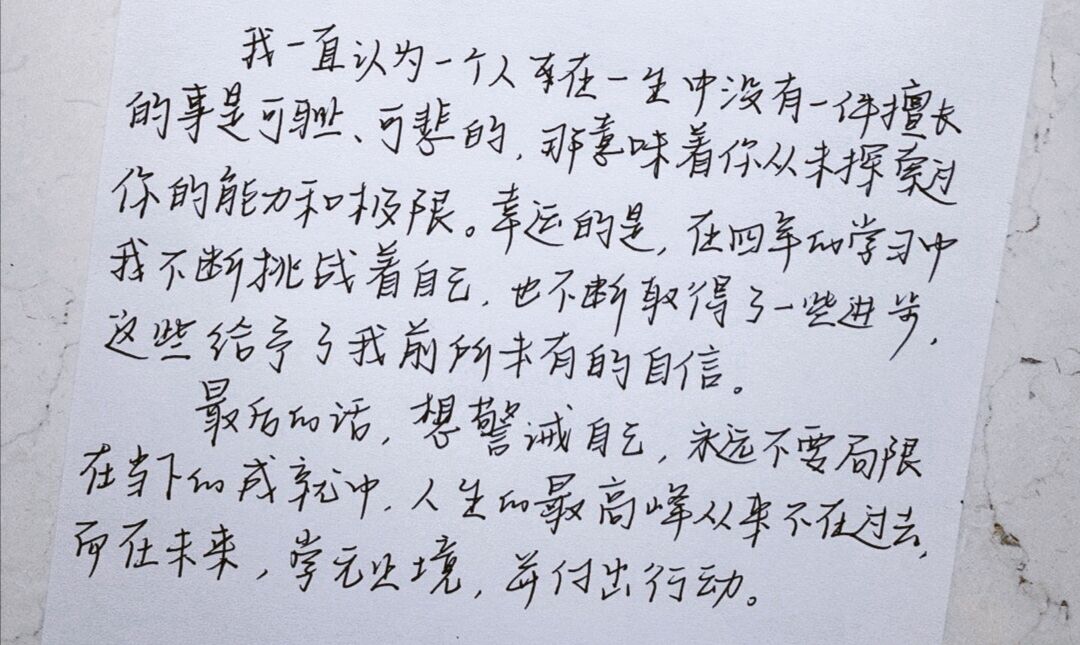 我一直认为一个人在一生中没有一件擅长
的事是可耻、可悲的，那意味着你从未探索过
你的能力和极限。幸运的是，在四年的学习中
我不断挑战着自己，也不断取得了一些进步，
这些给予了我前所未有的自信。
最后的话，想警诫自己，永远不要局限
在当下的成就中，人生的最高峰从来不在过去，
而在未来，学无止境，并付出行动。